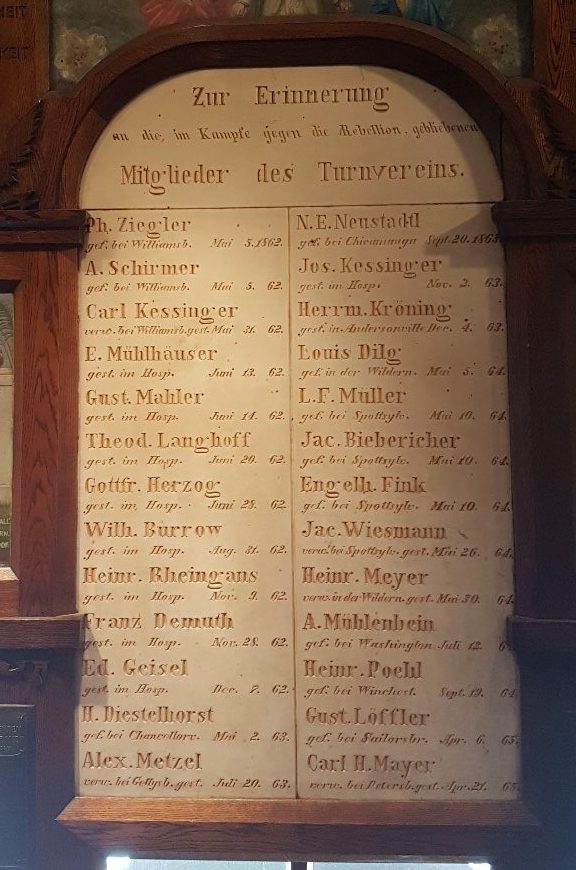 Zur Erinnerung
an die, im Kampfe gegen die Rebellion, gebliebenen
Mitglieder des Turnvereins.
Ph. Ziegler
gef. bei Williamsb. Mai 5. 1862.
A. Schirmer
gef. bei Williamsb. Mai 5. 62.
Carl Kessinger
verw. bei Williamsb. gest. Mai 31. 62.
E. Mühlhäuser
gest. im Hosp. Juni 13. 62.
Gust. Mahler
gest. im Hosp. Juni 14. 62.
Theod. Langhoff
gest. im Hosp. Juni 20. 62.
Gottfr. Herzog
gest. im Hosp. Juni 28. 62.
Wilh. Burrow
gest. im Hosp. Aug. 31. 62.
Heinr. Rheingans
gest. im Hosp. Nov. 9. 62.
Franz Demuth
gest. im Hosp. Nov. 28. 62.
Ed. Geisel
gest. im Hosp. Dec. 7. 62.
H. Diestelhorst
gef. bei Chancellorv. Mai 2. 63.
Alex. Metzel
verw. bei Gettysb. gest. Juli 20. 63.
N. E. Neustadtl
gef. bei Chicamauga Sept. 20. 1863
Jos. Kessinger
gest. im Hosp. Nov. 2. 63.
Herrm. Kröning
gest. in Andersonville Dec. 4. 63.
Louis Dilg
gef. in der Wildern. Mai 5. 64.
L. F. Müller
gef. bei Spottsylv. Mai 10. 64.
Jac. Biebericher
gef. bei Spottsylv. Mai 10. 64.
Engelh. Fink
gef. bei Spottsylv. Mai 10. 64.
Jac. Wiesmann
verw. bei Spottsylv. gest. Mai 26. 64.
Heinr. Meyer
verw. in der Wildern. gest. Mai 30. 64.
A. Mühlenbein
gef. bei Washington Juli 12.
Heinr. Poehl
gef. bei Winchest. Sept. 19. 64
Gust. Löffler
gef. bei Sailorsbr. Apr. 6. 65.
Carl H. Mayer
verw. bei Petersb. gest. Apr. 21. 65